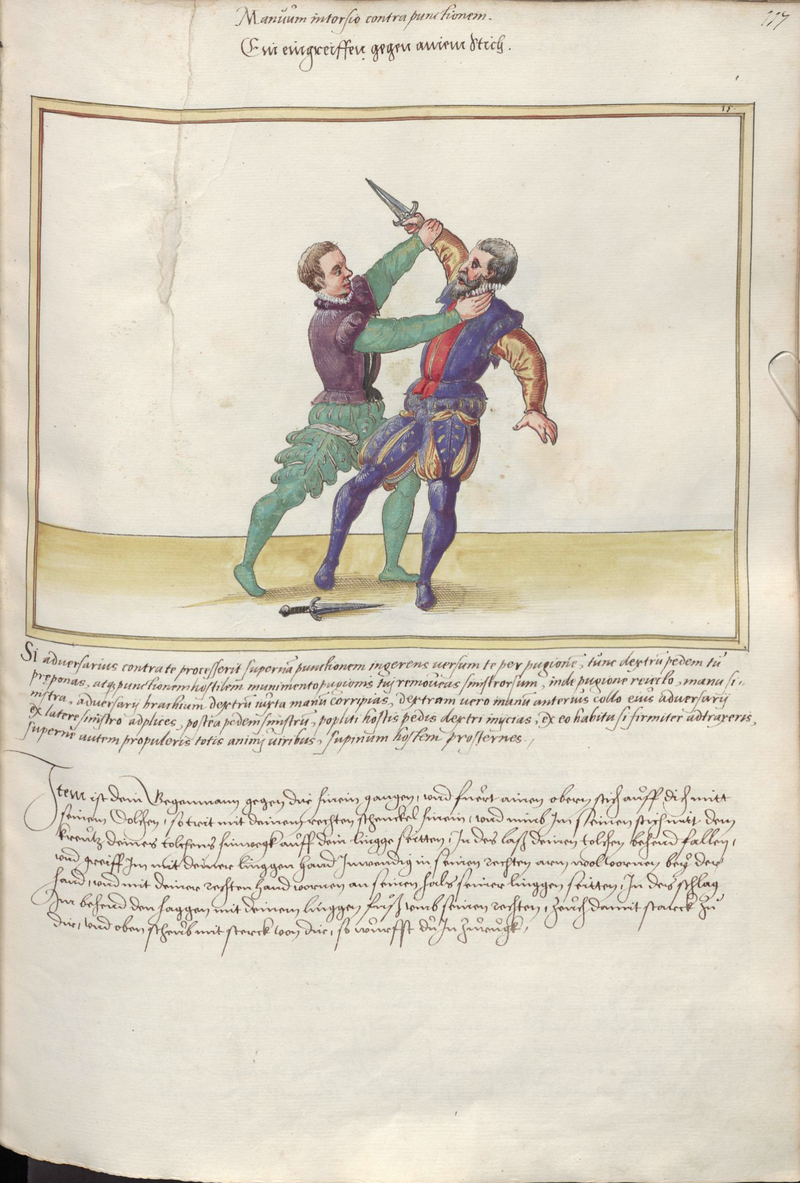 Manuum intorsio contra punctionem.
117
Ein eingreiffen gegen ainem Stich.
15.
Si adversarius contra te processerit supernã punctionem ingerens versum te per pugionẽ, tunc dextrũ pedem tũ
preponas, atq; punctionem hostilem munimento pugionis tuj removeas sinistrorsum, inde pugione reiecto, manu si-
nistra, adversarij brachium dextrũ iuxta manũ corripias, dextram vero manu anterius collo eius adversarij
ex latere sinistro adplices, postea pedem sinistrũ, popliti hostis pedis dextri inijcias, ex eo habitu si firmiter adtraxeris,
superne autem propuleris totis animj viribus, supinum hostem prosternes.
Item ist dein Gegenmann gegen dir hinein gangen, und fuert ainen obern stich auff dich mitt
seinem Dolchen, so trit mit deinem rechten schenckel hinein, und nimb Im seinen stich mit dem
kreutz deines tolchens hinwegk auff dein lingge seitten, In des lasz deinen tolchen behend fallen,
und greiff Im mit deiner linggen hand Inwendig in seinen rechten arm wol vornen bey der
hand, und mit deiner rechten hand vornen an seinen hals seiner linggen seitten, In des schlag
Im behend den haggen mit deinem linggen fuosz umb seinen rechten, zeuch damit starck zu
dir, und oben scheub mit sterck von dir, so wurffst du In zuruegk,